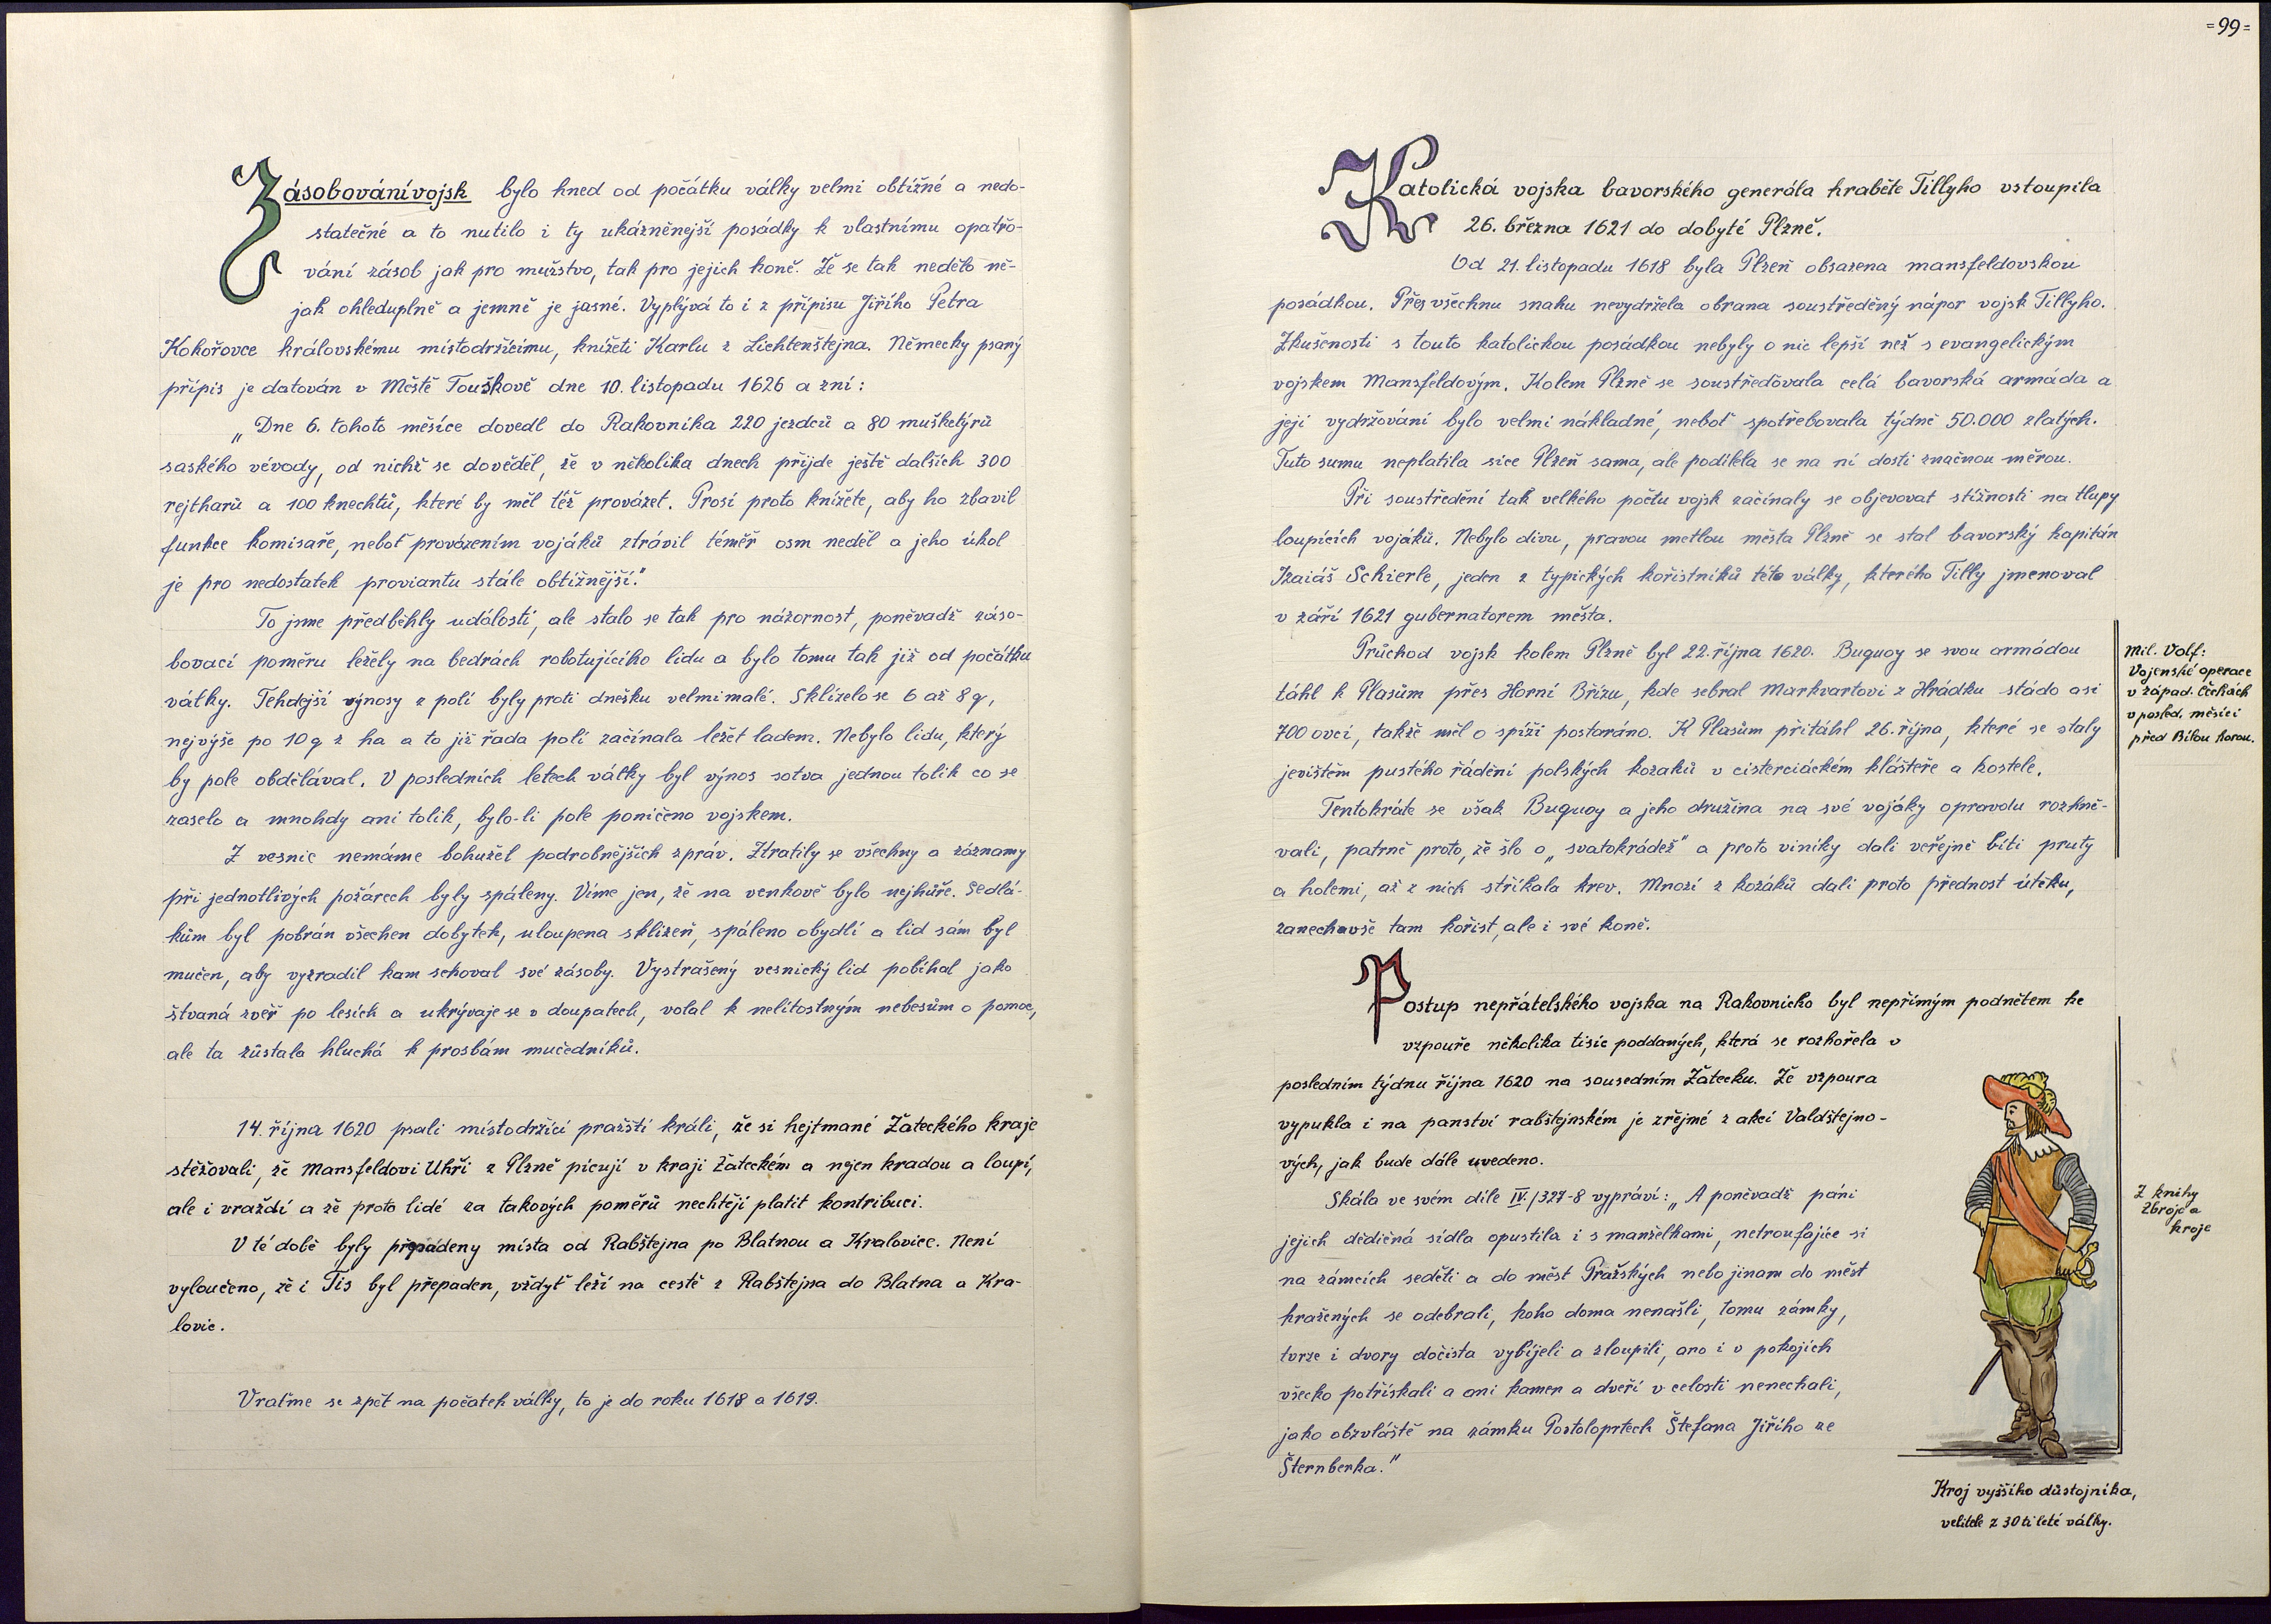 Zásobování vojsk bylo hned od počátku války velmi obtížné a nedo-
statečné a to nutilo i ty ukázněnější posádky k vlastnímu opatřo-
vání zásob jak pro mužstvo, tak pro jejich koně. Že se tak nedělo ně-
jak ohleduplně a jemně je jasné. Vyplývá to i z přípisu Jiřího Petra
Kokořovce královskému místodržícímu, knížeti Karlu z Liechtenštejna. Německy psaný
přípis je datován v Městě Touškově dne 10. listopadu 1626 a zní:
„Dne 6. tohoto měsíce dovedl do Rakovníka 220 jezdců a 80 mušketýrů
saského vévody, od nichž se dověděl, že v několika dnech přijde ještě dalších 300
rejtharů a 100 knechtů, které by měl též provázet. Prosí proto knížete, aby ho zbavil
funkce komisaře, neboť provázením vojáků ztrávil téměř osm neděl a jeho úkol
je pro nedostatek proviantu stále obtížnější."
To jsme předběhly událostí, ale stalo se tak pro názornost, poněvadž záso-
bovací poměru ležely na bedrách robotujícího lidu a bylo tomu tak již od počátku
války. Tehdejší výnosy z polí byly proti dnešku velmi malé. Sklízelo se 6 až 8 q,
nejvýše po 10 q z ha a to již řada polí začínala ležet ladem. Nebylo lidu, který
by pole obdělával. V posledních letech války byl výnos sotva jednou tolik co se
zaselo a mnohdy ani tolik, bylo-li pole poničeno vojskem.
Z vesnic nemáme bohužel podrobnějších zpráv. Ztratily se všechny a záznamy
při jednotlivých požárech byly spáleny. Víme jen, že na venkově bylo nejhůře. Sedlá-
kům byl pobrán všechen dobytek, uloupena sklizeň, spáleno obydlí a lid sám byl
mučen, aby vyzradil kam schoval své zásoby. Vystrašený vesnický lid pobíhal jako
štvaná zvěř po lesích a ukrývaje se v doupatech, volal k nelítostným nebesům o pomoc,
ale ta zůstala hluchá k prosbám mučedníků.
14. října 1620 psali místodržící pražští králi, že si hejtmané Žateckého kraje
stěžovali, že Mansfeldovi Uhři z Plzně pícují v kraji Žateckém a nejen kradou a loupí,
ale i vraždí a že proto lidé za takových poměrů nechtějí platit kontribuci.
V té době byly přepadeny místa od Rabštejna po Blatnou a Kralovice. Není
vyloučeno, že i Tis byl přepaden, vždyť leží na cestě z Rabštejna do Blatna a Kra-
lovic.
Vraťme se zpět na počátek války, to je do roku 1618 a 1619.
=99=
Katolická vojska bavorského generála hraběte Tillyho vstoupila
26. března 1621 do dobyté Plzně.
Od 21. listopadu 1618 byla Plzeň obsazena mansfeldovskou
posádkou. Přes všechnu snahu nevydržela obrana soustředěný nápor vojsk Tillyho.
Zkušenosti s touto katolickou posádkou nebyly o nic lepší než s evangelickým
vojskem Mansfeldovým. Kolem Plzně se soustřeďovala celá bavorská armáda a
její vydržování bylo velmi nákladné, neboť spotřebovala týdně 50.000 zlatých.
Tuto sumu neplatila sice Plzeň sama, ale podílela se na ní dosti značnou měrou.
Při soustředění tak velkého počtu vojsk začínaly se objevovat stížnosti na tlupy
loupících vojáků. Nebylo divu, pravou metlou města Plzně se stal bavorský kapitán
Izaiáš Schierle, jeden z typických kořistníků této války, kterého Tilly jmenoval
v září 1621 gubernatorem města.
Průchod vojsk kolem Plzně byl 22. října 1620. Buquoy se svou armádou
táhl k Plasům přes Horní Břízu, kde sebral Markvartovi z Hrádku stádo asi
700 ovcí, takže měl o spíži postaráno. K Plasům přitáhl 26. října, které se staly
jevištěm pustého řádění polských kozaků v cisterciáckém klášteře a kostele.
Tentokráte se však Buquoy a jeho družina na své vojáky opravdu rozhně-
vali, patrně proto, že šlo o „svatokrádež" a proto viníky dali veřejně bíti pruty
a holemi, až z nich stříkala krev. Mnozí z kozáků dali proto přednost útěku,
zanechavše tam kořist, ale i své koně.
Mil. Volf:
Vojenské operace
v západ. Čechách
v posled. měsíci
před Bílou horou.
Postup nepřátelského vojska na Rakovnicko byl nepřímým podnětem ke
vzpouře několika tisíc poddaných, která se rozhořela v
posledním týdnu října 1620 na sousedním Žatecku. Že vzpoura
vypukla i na panství rabštejnském je zřejmé z akcí Valdštejno-
vých, jak bude dále uvedeno.
Skála ve svém díle IV./327-8 vypráví: „A poněvadž páni
jejich dědičná sídla opustila i s manželkami, netroufajíce si
na zámcích seděti a do měst Pražských nebo jinam do měst
hražených se odebrali, koho doma nenašli, tomu zámky,
tvrze i dvory dočista vybíjeli a zloupili, ano i v pokojích
všecko potřískali a ani kamen a dveří v celosti nenechali,
jako obzvláště na zámku Postoloprtech Štefana Jiřího ze
Šternberka."
Z knihy
Zbroje a
kroje
Kroj vyššího důstojníka,
velitele z 30ti leté války.